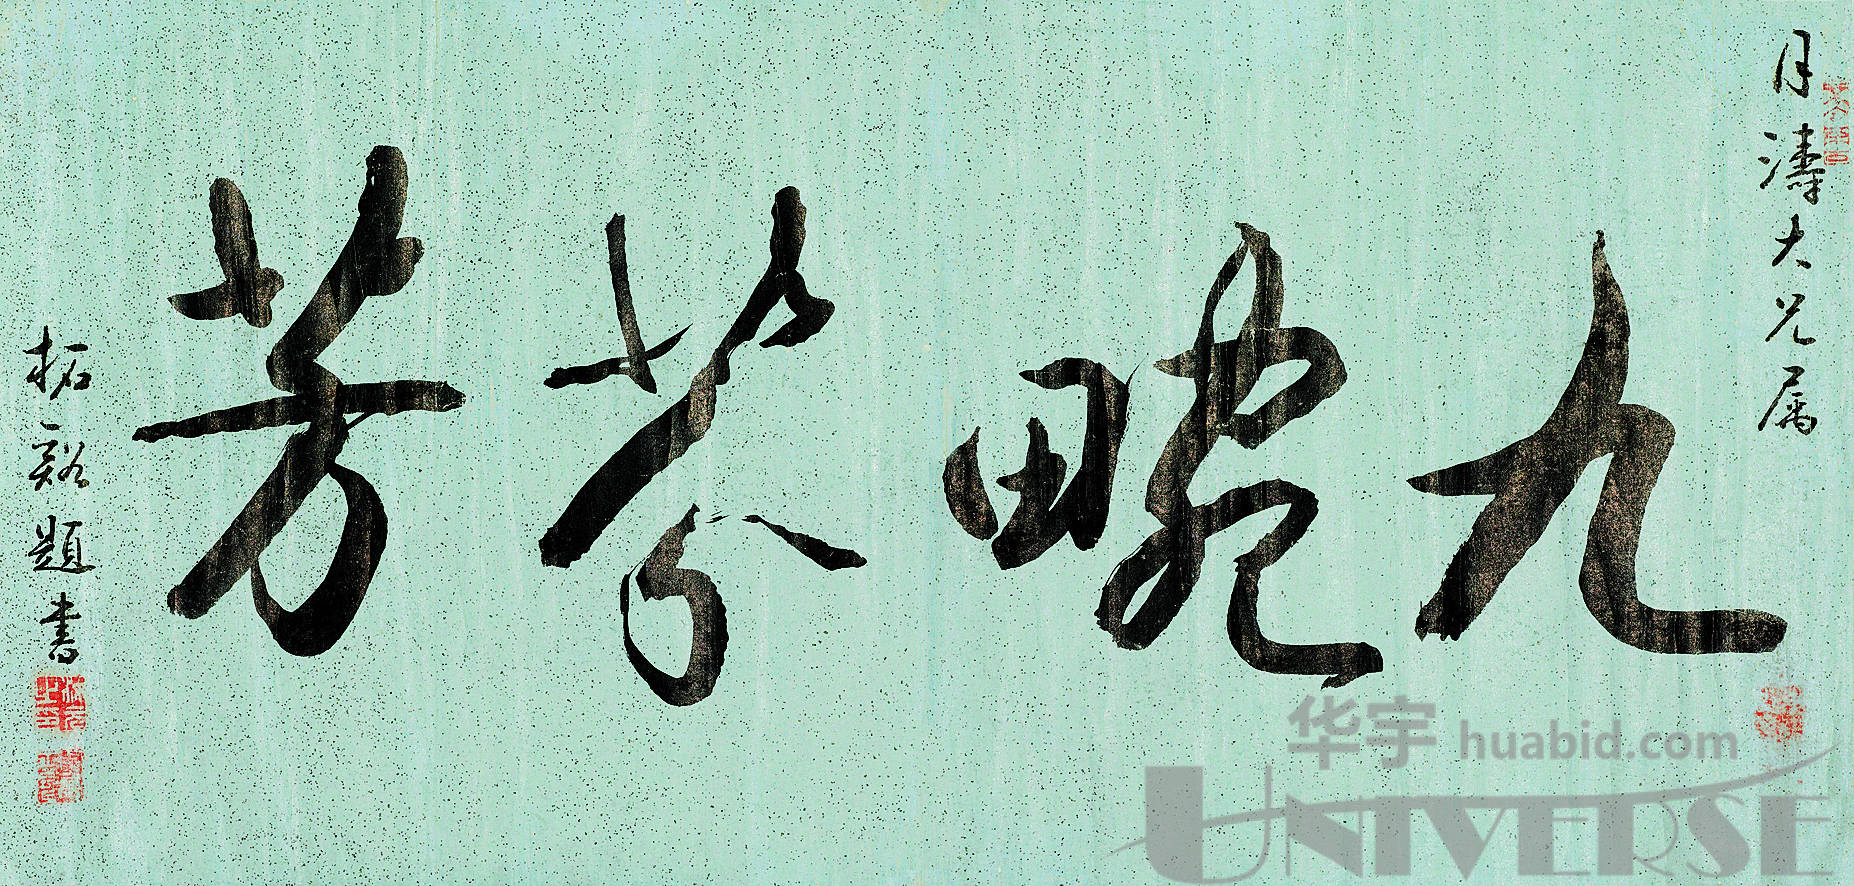 月濤大兄属
九畹芬芳
柘谿題書
华宇 huabid.com
UNIVERSE